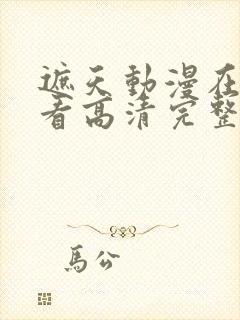 遮天動漫在
看高清完整
馬公